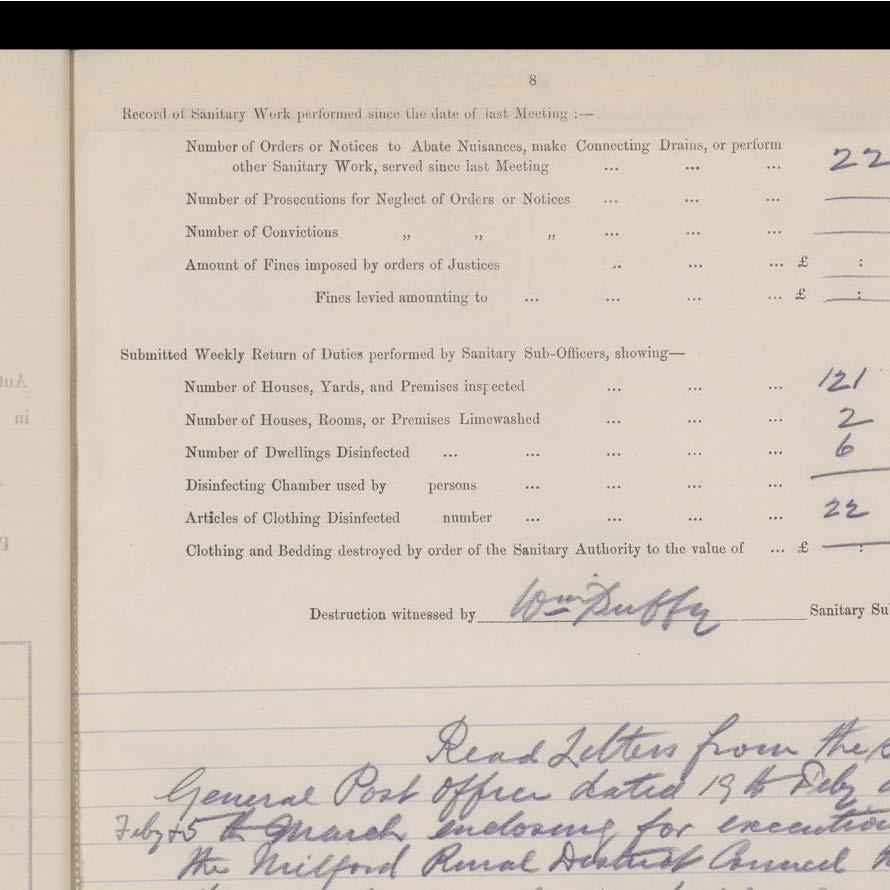 8
Record of Sanitary Work performed since the date of last Meeting :—
Number of Orders or Notices to Abate Nuisances, make Connecting Drains, or perform
other Sanitary Work, served since last Meeting ... ... ... 22
Number of Prosecutions for Neglect of Orders or Notices ... ... ... —
Number of Convictions „ „ „ ... ... ... —
Amount of Fines imposed by orders of Justices .. ... ... £ :
Fines levied amounting to ... ... ... ... £ :
Submitted Weekly Return of Duties performed by Sanitary Sub-Officers, showing—
Number of Houses, Yards, and Premises inspected ... ... ... 121
Number of Houses, Rooms, or Premises Limewashed ... ... ... 2
Number of Dwellings Disinfected ... ... ... ... ... 6
Disinfecting Chamber used by persons ... ... ... ... —
Articles of Clothing Disinfected number ... ... ... ... 22
Clothing and Bedding destroyed by order of the Sanitary Authority to the value of ... £ :
Destruction witnessed by Wm Duffy Sanitary Su
Read Letters from the
General Post Office dated 19th Feby
Feby 5th March enclosing for execution
the Milford Rural District Council